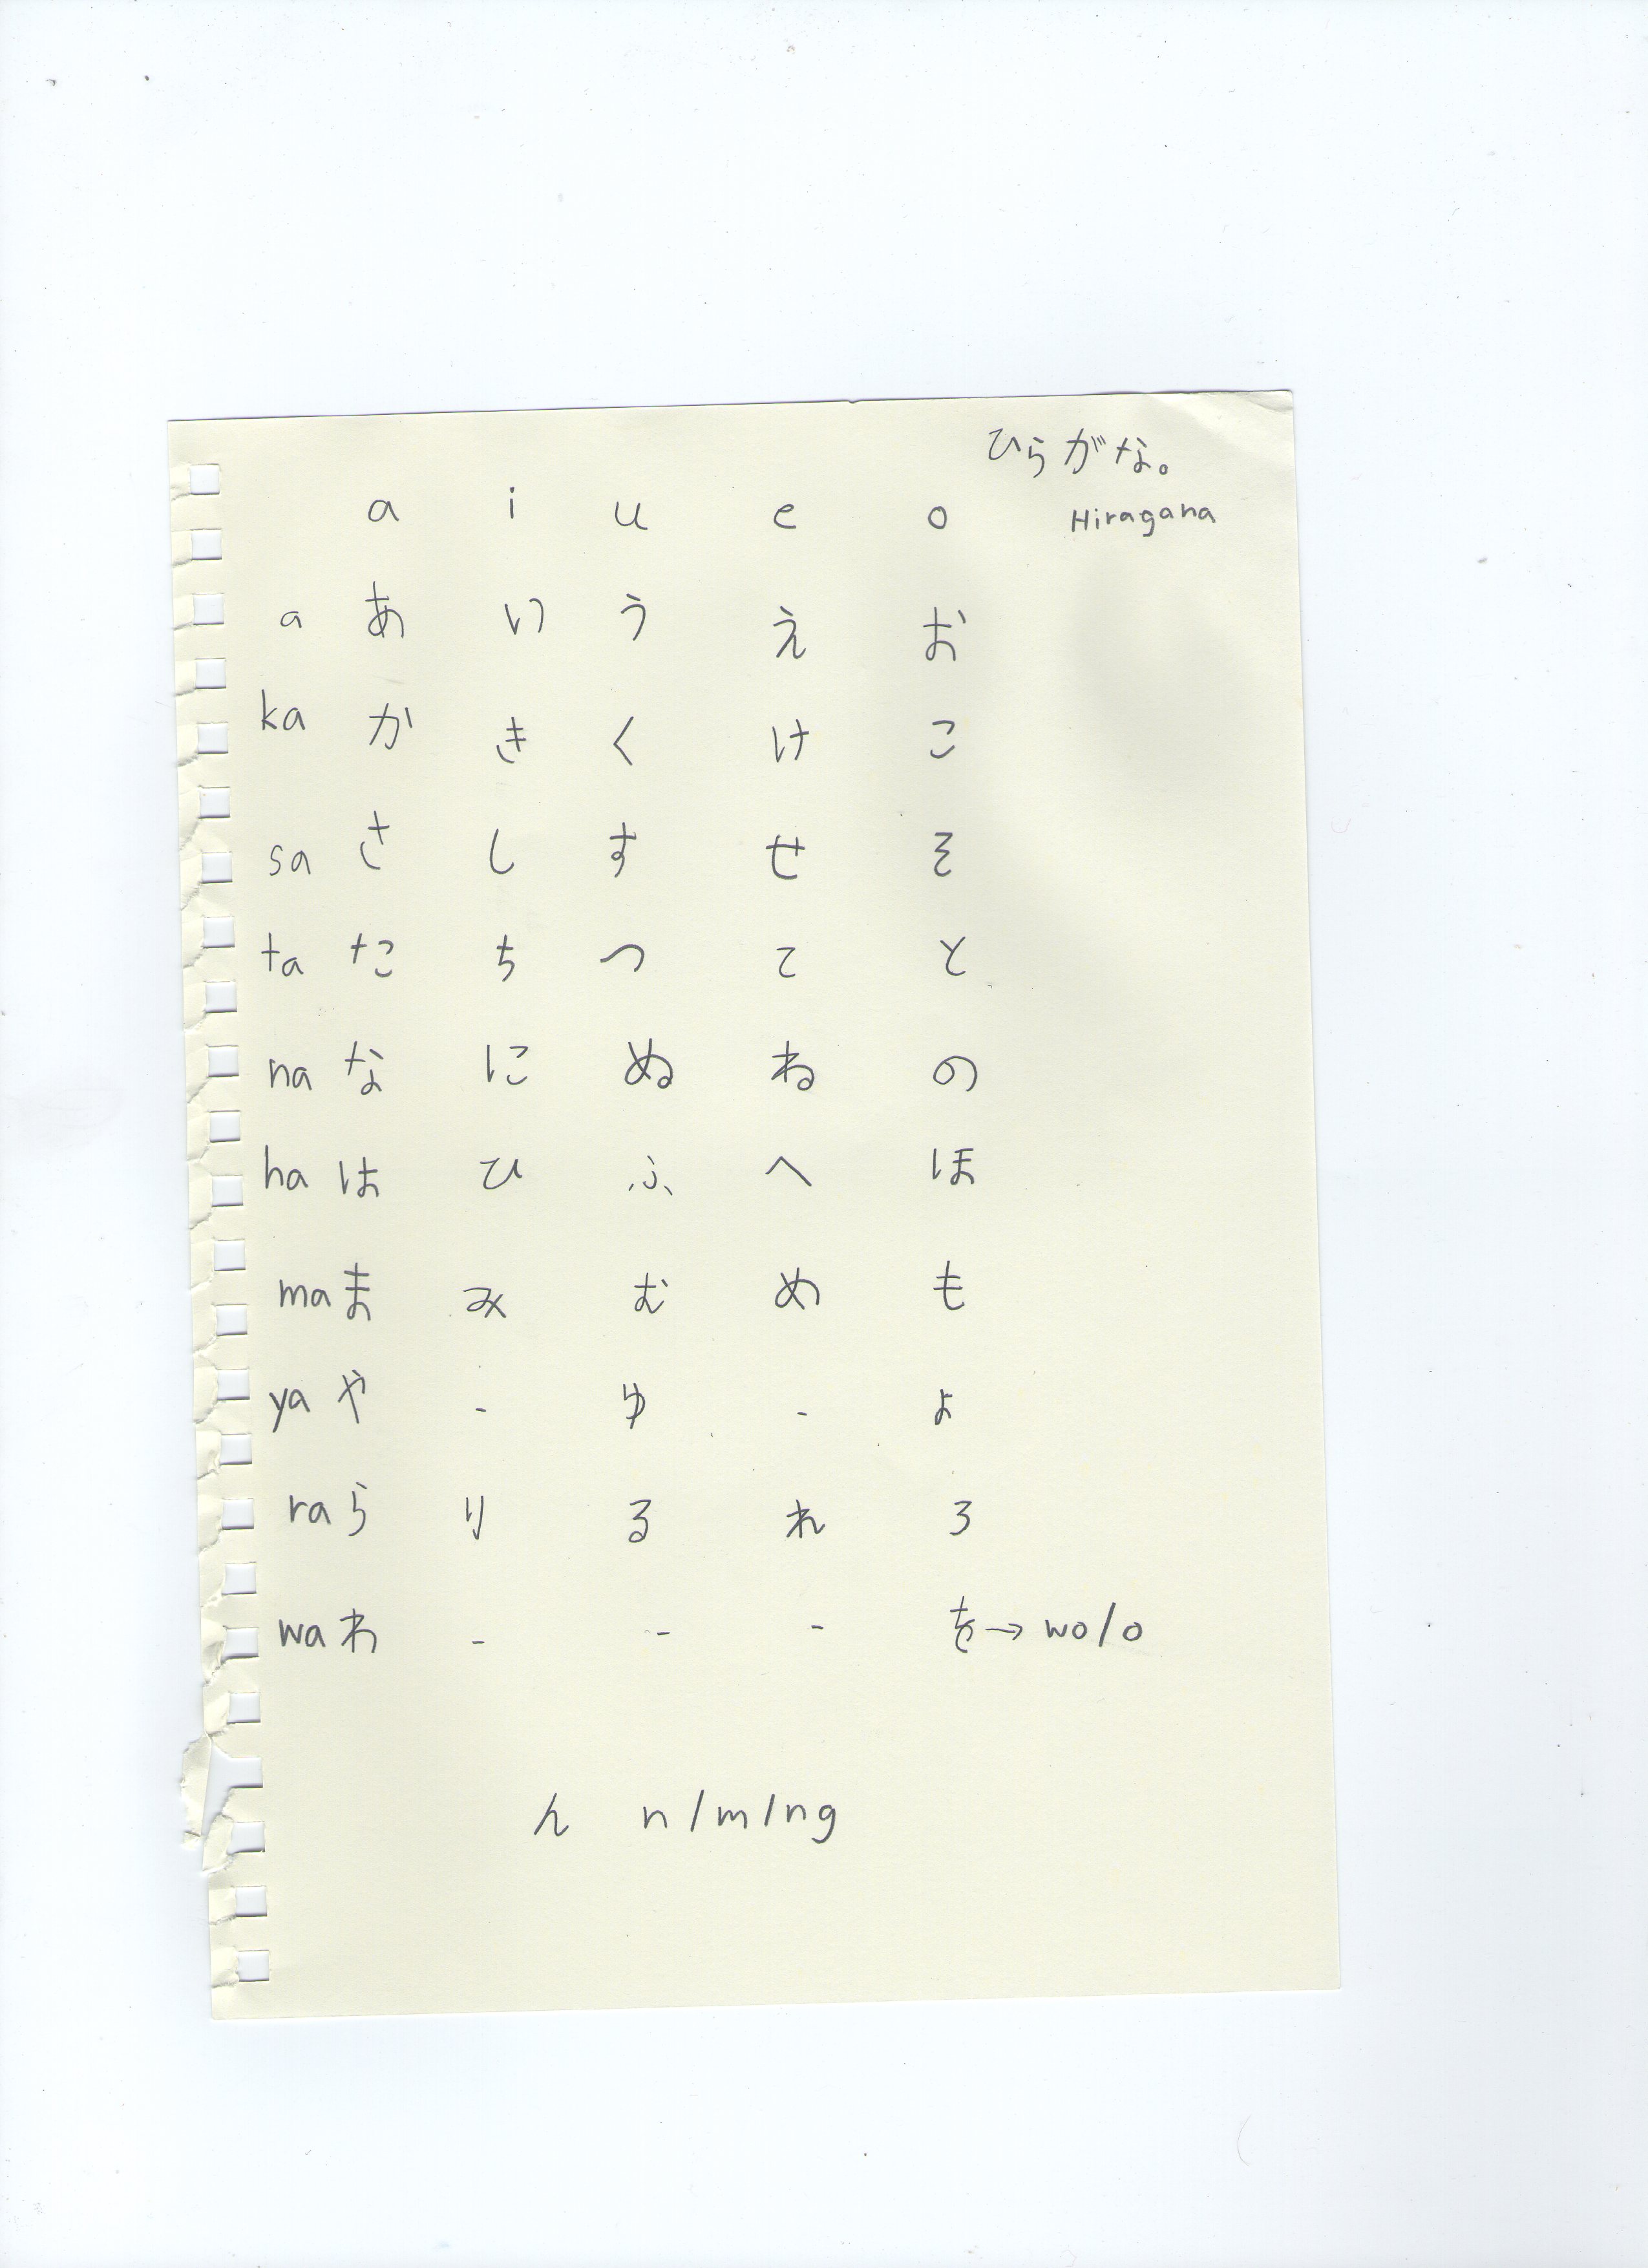 ひらがな。
Hiragana
a i u e o
a あ い う え お
ka か き く け こ
sa さ し す せ そ
ta た ち つ て と
na な に ぬ ね の
ha は ひ ふ へ ほ
ma ま み む め も
ya や - ゆ - よ
ra ら り る れ ろ
wa わ - - - を→ wo/o
ん n/m/ng